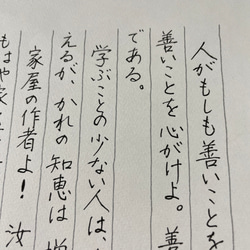 人がもしも善いことを
善いことを心がけよ。善
である。
学ぶことの少ない人は、
えるが、かれの知恵は増
家屋の作者よ！汝
もはや家